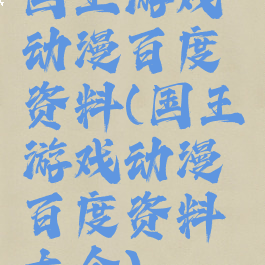 国王游戏
动漫百度
资料(国王
游戏动漫
百度资料
大全)